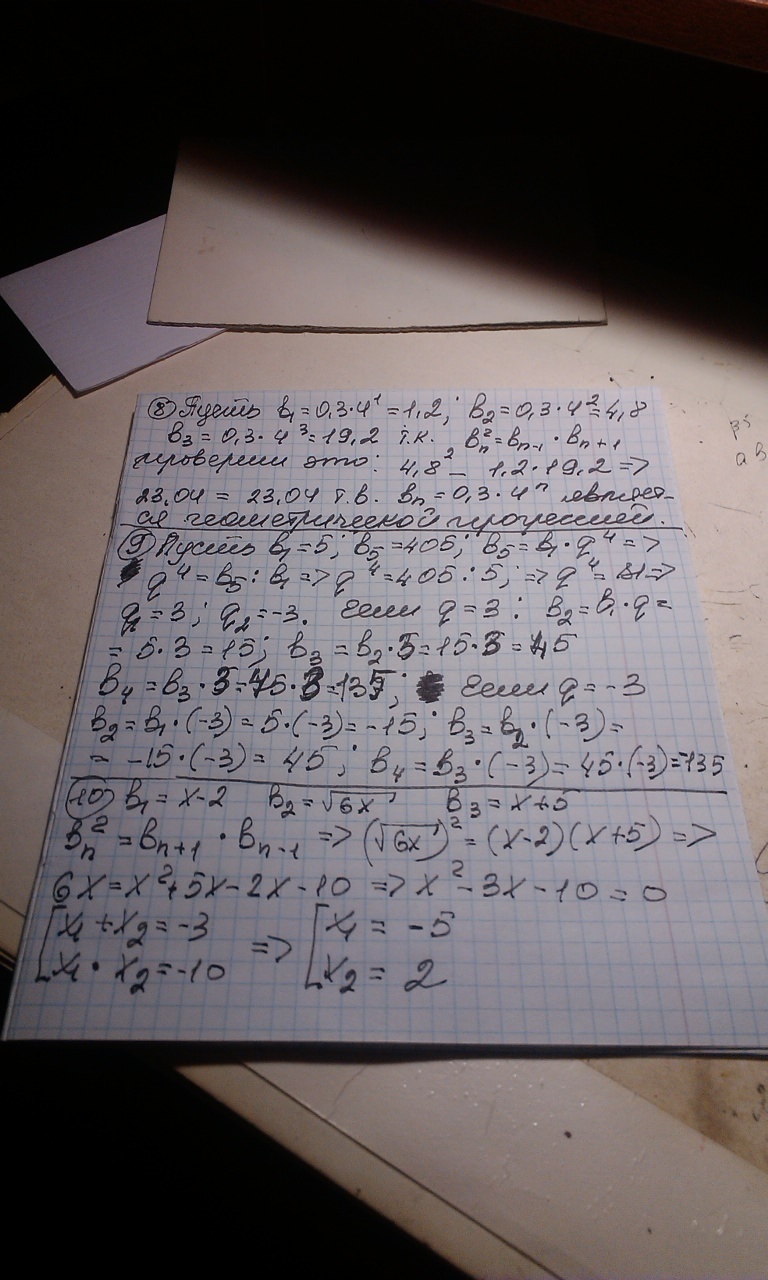 ⑧ Пусть b₁ = 0,3·4¹ = 1,2; b₂ = 0,3·4² = 4,8
b₃ = 0,3·4³ = 19,2 т.к. bₙ² = bₙ₋₁ · bₙ₊₁
проверим это: 4,8² = 1,2·19,2 =>
23,04 = 23,04 т.в. bₙ = 0,3·4ⁿ являет-
ся геометрической прогрессией.
⑨ Пусть b₁ = 5; b₅ = 405; b₅ = b₁·q⁴ =>
q⁴ = b₅ : b₁ => q⁴ = 405 : 5; => q⁴ = 81 =>
q₁ = 3; q₂ = -3. Если q = 3: b₂ = b₁·q =
= 5·3 = 15; b₃ = b₂·3 = 15·3 = 45
b₄ = b₃·3 = 45·3 = 135; Если q = -3
b₂ = b₁·(-3) = 5·(-3) = -15; b₃ = b₂·(-3) =
= -15·(-3) = 45; b₄ = b₃·(-3) = 45·(-3) = -135
⑩ b₁ = x-2 b₂ = √6x b₃ = x+5
bₙ² = bₙ₊₁ · bₙ₋₁ => (√6x)² = (x-2)(x+5) =>
6x = x²+5x-2x-10 => x²-3x-10 = 0
[x₁+x₂ = -3 => [x₁ = -5
x₁·x₂ = -10 x₂ = 2